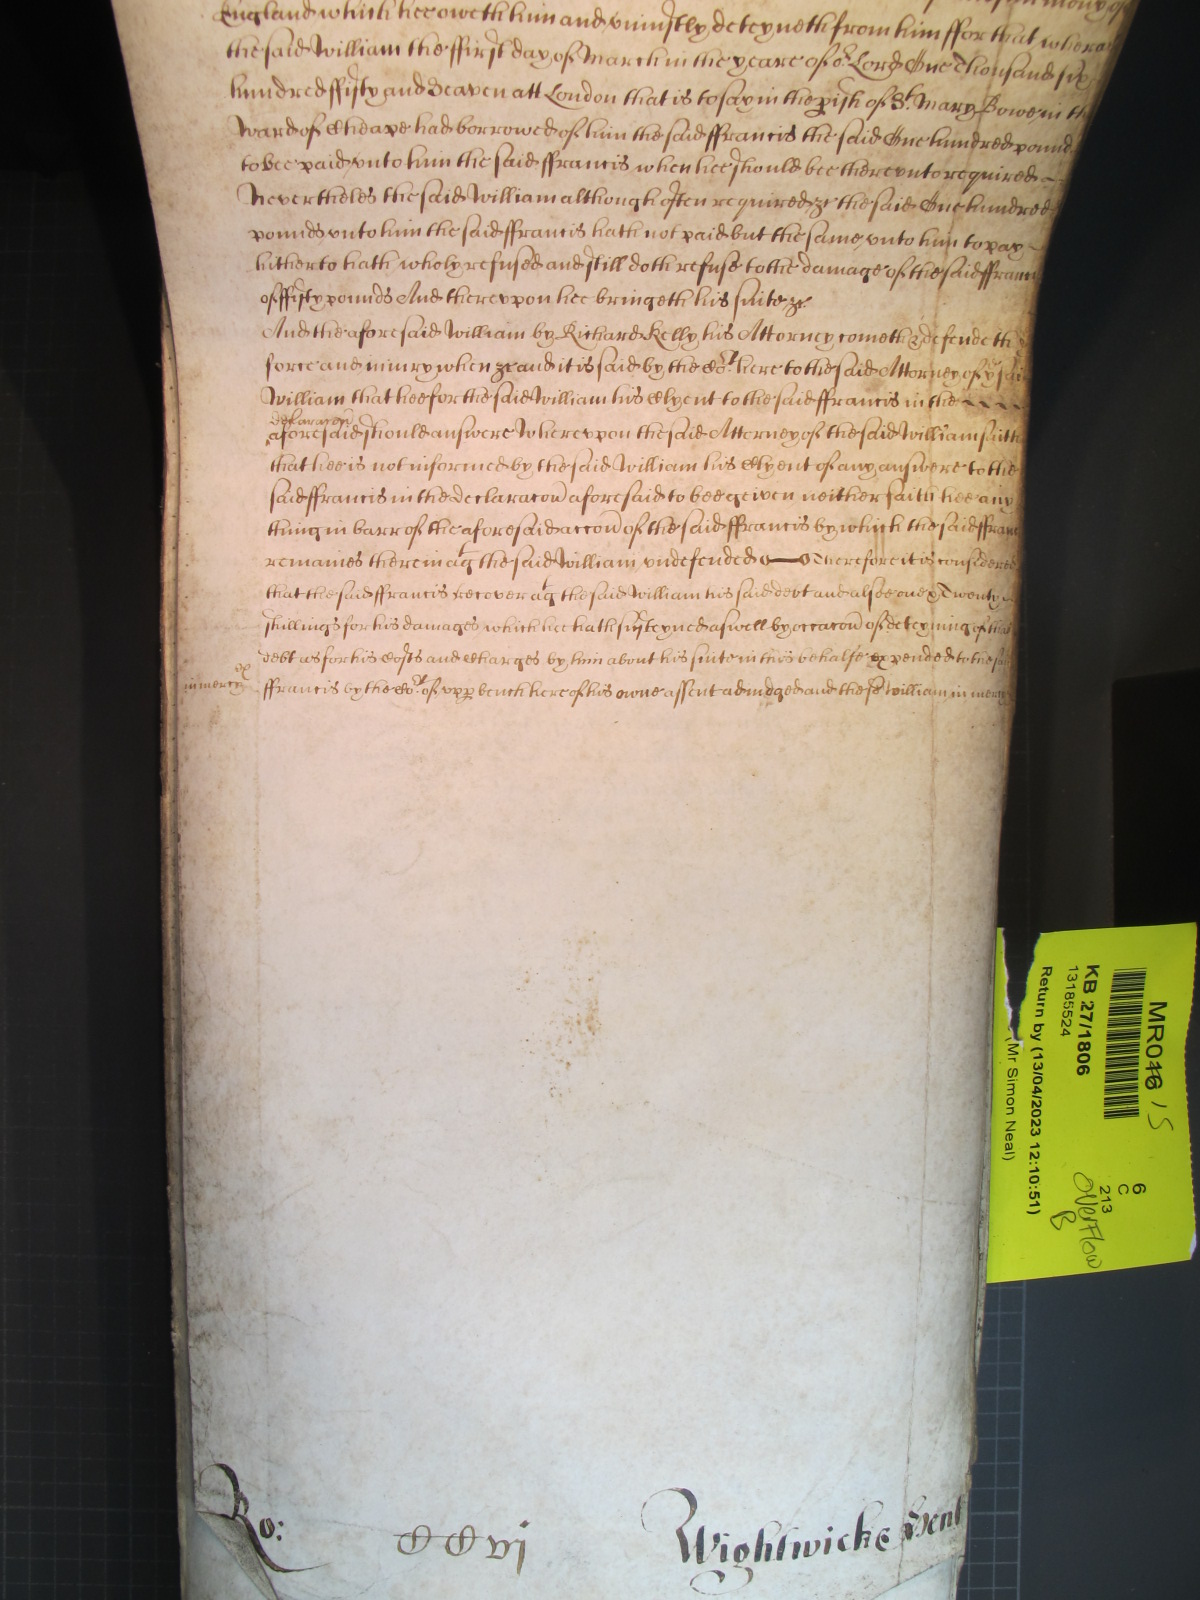 England which hee oweth him and vniustly deteyneth from him ffor that wheras
the said William the ffirst day of March in the yeare of or Lord One Thousand six
hundred ffifty and Seaven att London that is to say in the pish of St Mary Bowe in the
Ward of Cheape had borrowed of him the said ffrancis the said One hundred pounds
to bee paid vnto him the said ffrancis when hee should bee therevnto required
Nevertheles the said William although often required &c the said One hundred
pounds vnto him the said ffrancis hath not paid but the same vnto him to pay
hitherto hath wholy refused and still doth refuse to the damage of the said ffrancis
of ffifty pounds And therevpon hee bringeth his suite &c
And the aforesaid William by Richard Kelly his Attorney cometh & defendeth ye
force and iniury when &c and it is said by the Cort here to the said Attorney of ye said
William that hee for the said William his Clyent to the said ffrancis in the
declaracon
aforesaid should answere Wherevpon the said Attorney of the said William saith
that hee is not informed by the said William his Clyent of any answere to the
said ffrancis in the declaracon aforesaid to bee geiven neither saith hee any
thing in barr of the aforesaid accon of the said ffrancis by which the said ffrancis
remaines therein agt the said William vndefended Therefore it is considered
that the said ffrancis recover agt the said William his said debt and alsoe one & Twenty
shillings for his damages which hee hath susteyned aswell by occacon of deteyning of that
debt as for his Costs and Charges by him about his suite in this behalfe expended to the said
ffrancis by the Cort of vpp bench here of his owne assent adiudged and the sd William in mercy
in mercy
Ro: CCvi Wightwicke Hent
MR046 15
KB 27/1806
13185524
Return by (13/04/2023 12:10:51)
(Mr Simon Neal)
6
C
213
overflow
B